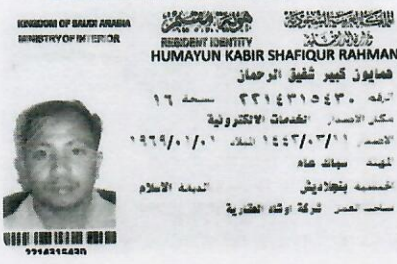 KINGDOM OF SAUDI ARABIA
MINISTRY OF INTERIOR
هوية مقيم
RESIDENT IDENTITY
المملكة العربية السعودية
وزارة الداخلية
HUMAYUN KABIR SHAFIQUR RAHMAN
همايون كبير شفيق الرحمان
الرقم ٢٢١٤٣١٥٤٣٠ نسخة ١٦
مكان الاصدار الخدمات الالكترونية
الاصدار ١٤٤٢/٠٣/١١ الميلاد ١٩٦٩/٠١/٠١
المهنة سباك عام
الجنسية بنجلاديش الديانة الاسلام
صاحب العمل شركة اوتاد العقارية
2214315430